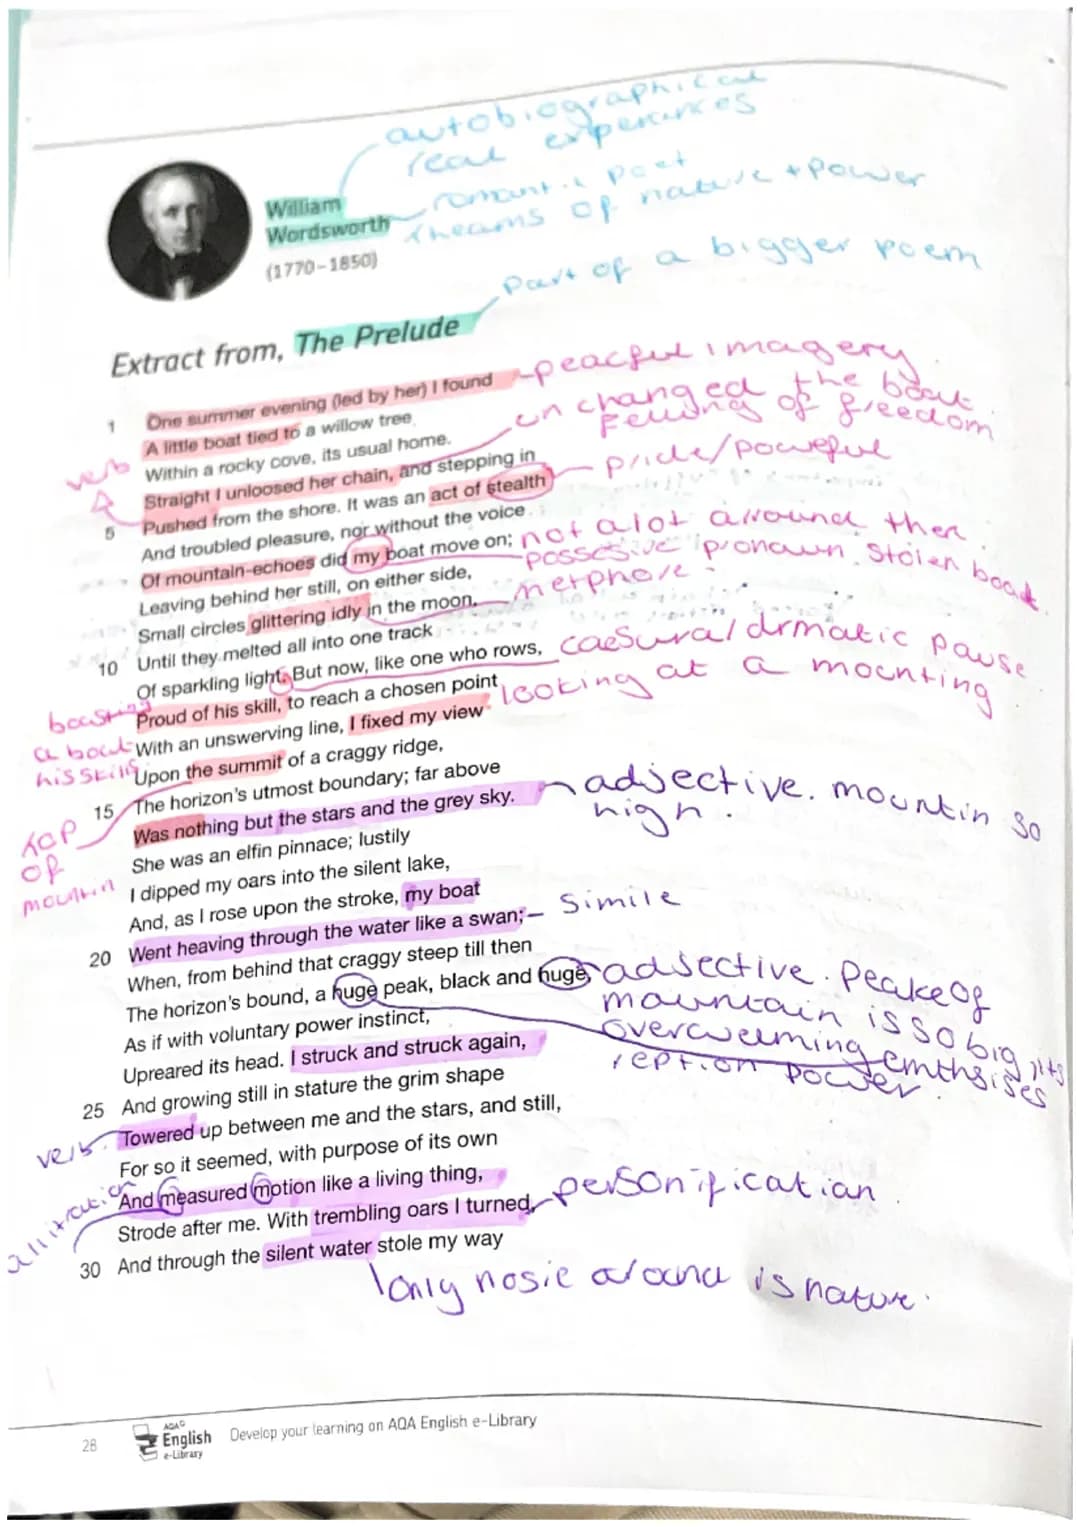 autobiographical
real experinces
romantic poet
theams of nature + power
William
Wordsworth
(1770–1850)
Part of a bigger poem
Extract from, The Prelude
1 One summer evening (led by her) I found
-peacful imagery.
A little boat tied to a willow tree
un changed the boat.
Within a rocky cove, its usual home.
feeling of freedom
verb
Straight I unloosed her chain, and stepping in
pride/powerful
5 Pushed from the shore. It was an act of stealth
And troubled pleasure, nor without the voice
not alot arround then.
Of mountain-echoes did my boat move on;
possesive pronoun. Stolen boat.
Leaving behind her still, on either side,
metphore.
Small circles glittering idly in the moon,
10 Until they melted all into one track
caesura/drmatic pause
Of sparkling light. But now, like one who rows,
looking at a mounting
boasting
a bout
his skills
Proud of his skill, to reach a chosen point
With an unswerving line, I fixed my view
Upon the summit of a craggy ridge,
15 The horizon's utmost boundary; far above
adjective. mountin so
high.
top
of
mountin
Was nothing but the stars and the grey sky.
She was an elfin pinnace; lustily
I dipped my oars into the silent lake,
And, as I rose upon the stroke, my boat
Simile
20 Went heaving through the water like a swan;
When, from behind that craggy steep till then
The horizon's bound, a huge peak, black and huge,
adjective. Peake of
mountain is so big, its
overweeming emthsises
reption power.
As if with voluntary power instinct,
Upreared its head. I struck and struck again,
25 And growing still in stature the grim shape
verb.
Towered up between me and the stars, and still,
For so it seemed, with purpose of its own
allitration
And measured motion like a living thing,
personification
Strode after me. With trembling oars I turned,
30 And through the silent water stole my way
only nosie around is nature.
28
AQA
English
e-Library
Develop your learning on AQA English e-Library